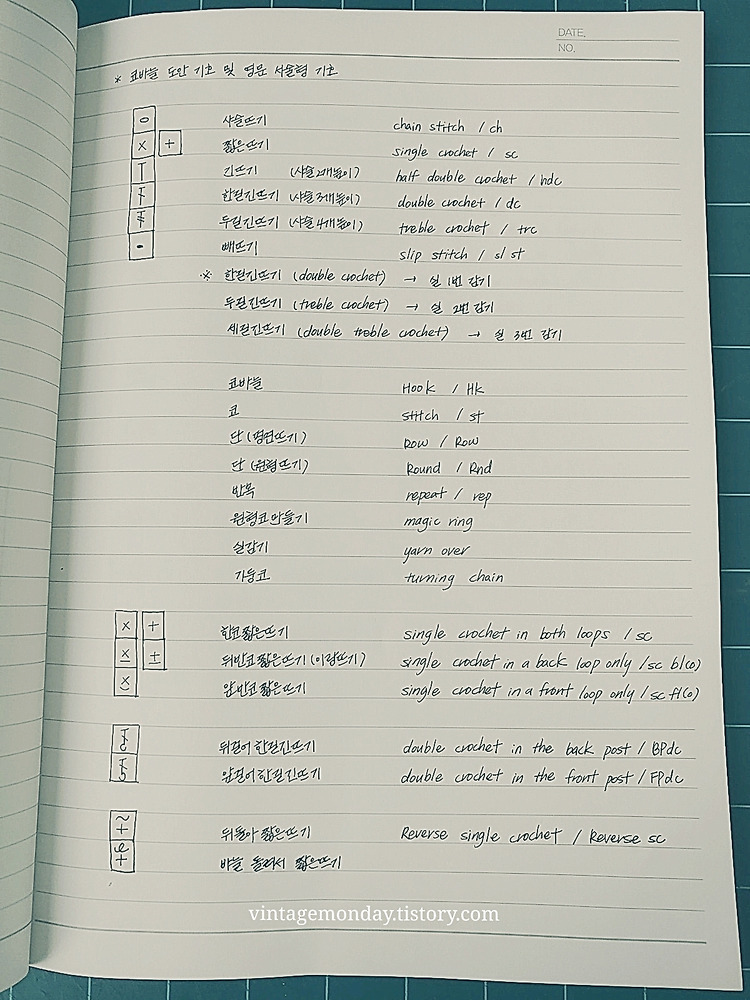 DATE.
NO.
* 코바늘 도안 기호 및 영문 서술형 기호
사슬뜨기 chain stitch / ch
짧은뜨기 single crochet / sc
긴뜨기 (사슬2개높이) half double crochet / hdc
한길긴뜨기 (사슬3개높이) double crochet / dc
두길긴뜨기 (사슬4개높이) treble crochet / trc
빼뜨기 slip stitch / sl st
※ 한길긴뜨기 (double crochet) → 실 1번 감기
두길긴뜨기 (treble crochet) → 실 2번 감기
세길긴뜨기 (double treble crochet) → 실 3번 감기
코바늘 Hook / Hk
코 stitch / st
단 (평면뜨기) Row / Row
단 (원형뜨기) Round / Rnd
반복 repeat / rep
원형코만들기 magic ring
실감기 yarn over
기둥코 turning chain
한코짧은뜨기 single crochet in both loops / sc
뒤반코짧은뜨기 (이랑뜨기) single crochet in a back loop only / sc bl(o)
앞반코짧은뜨기 single crochet in a front loop only / sc fl(o)
뒤걸어한길긴뜨기 double crochet in the back post / BPdc
앞걸어한길긴뜨기 double crochet in the front post / FPdc
뒤돌아짧은뜨기 Reverse single crochet / Reverse sc
바늘 돌려서 짧은뜨기
vintagemonday.tistory.com